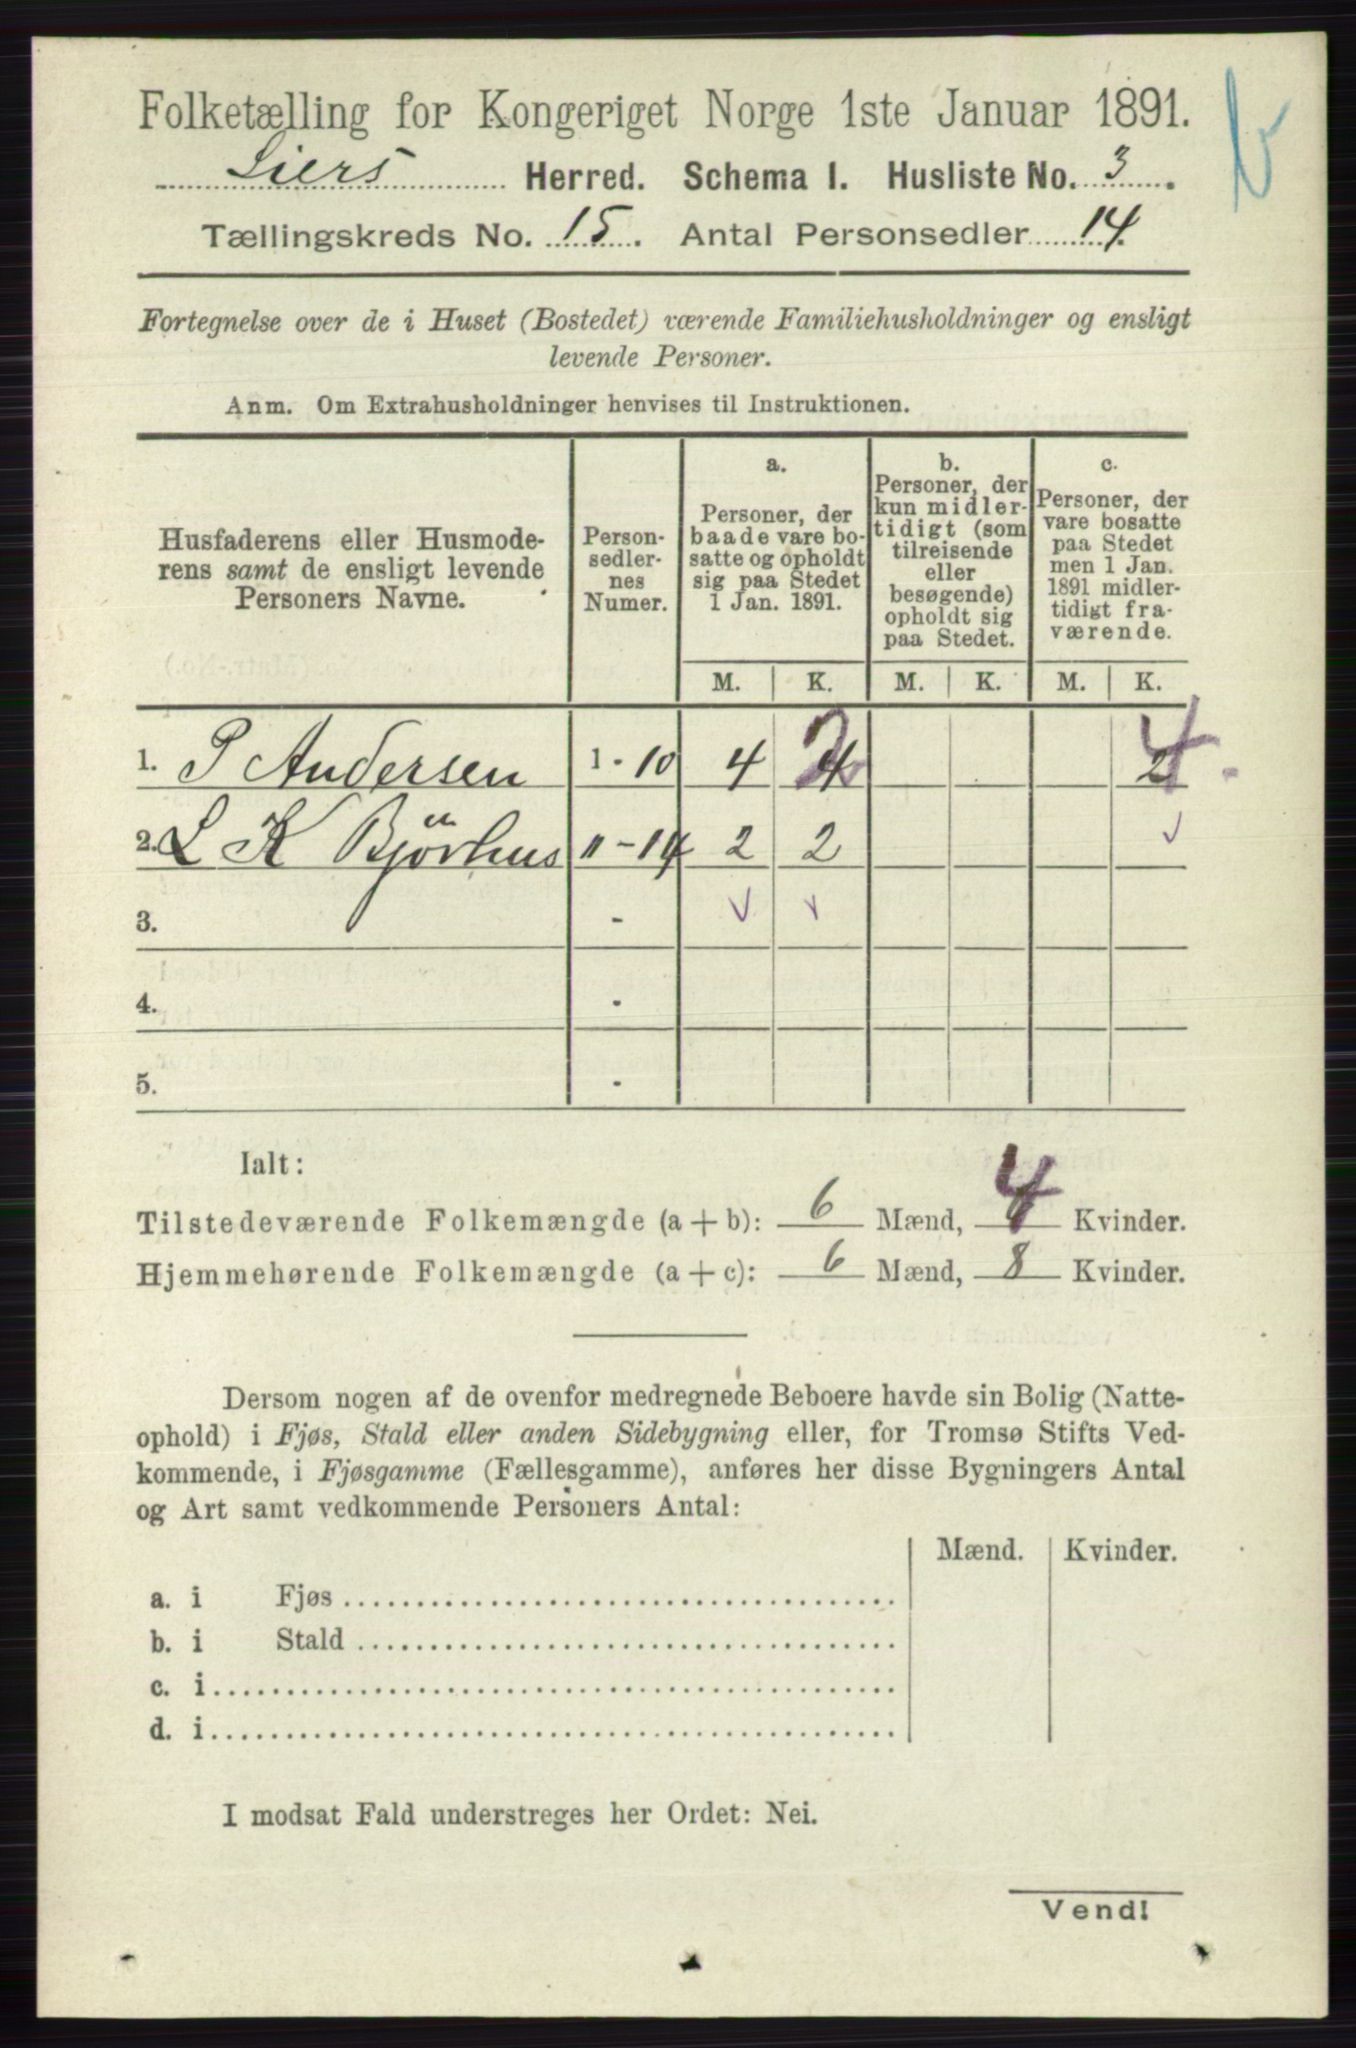 Folketælling for Kongeriget Norge 1ste Januar 1891.
Liers Herred. Schema I. Husliste No. 3.
Tællingskreds No. 15. Antal Personsedler 14.
Fortegnelse over de i Huset (Bostedet) værende Familiehusholdninger og ensligt
levende Personer.
Anm. Om Extrahusholdninger henvises til Instruktionen.
Husfaderens eller Husmode-
rens samt de ensligt levende
Personers Navne.
Person-
sedler-
nes
Numer.
a.
Personer, der
baade vare bo-
satte og opholdt
sig paa Stedet
1 Jan. 1891.
b.
Personer, der
kun midler-
tidigt (som
tilreisende
eller
besøgende)
opholdt sig
paa Stedet.
c.
Personer, der
vare bosatte
paa Stedet
men 1 Jan.
1891 midler-
tidigt fra-
værende.
M. K. M. K. M. K.
1. P Andersen 1 - 10 4 2 4
2. L K Björhus 11 - 14 2 2
3. -
4. -
5. -
Ialt:
Tilstedeværende Folkemængde (a + b): 6 Mænd, 4 Kvinder.
Hjemmehørende Folkemængde (a + c): 6 Mænd, 8 Kvinder.
Dersom nogen af de ovenfor medregnede Beboere havde sin Bolig (Natte-
ophold) i Fjøs, Stald eller anden Sidebygning eller, for Tromsø Stifts Ved-
kommende, i Fjøsgamme (Fællesgamme), anføres her disse Bygningers Antal
og Art samt vedkommende Personers Antal:
Mænd. Kvinder.
a. i Fjøs
b. i Stald
c. i
d. i
I modsat Fald understreges her Ordet: Nei.
Vend!